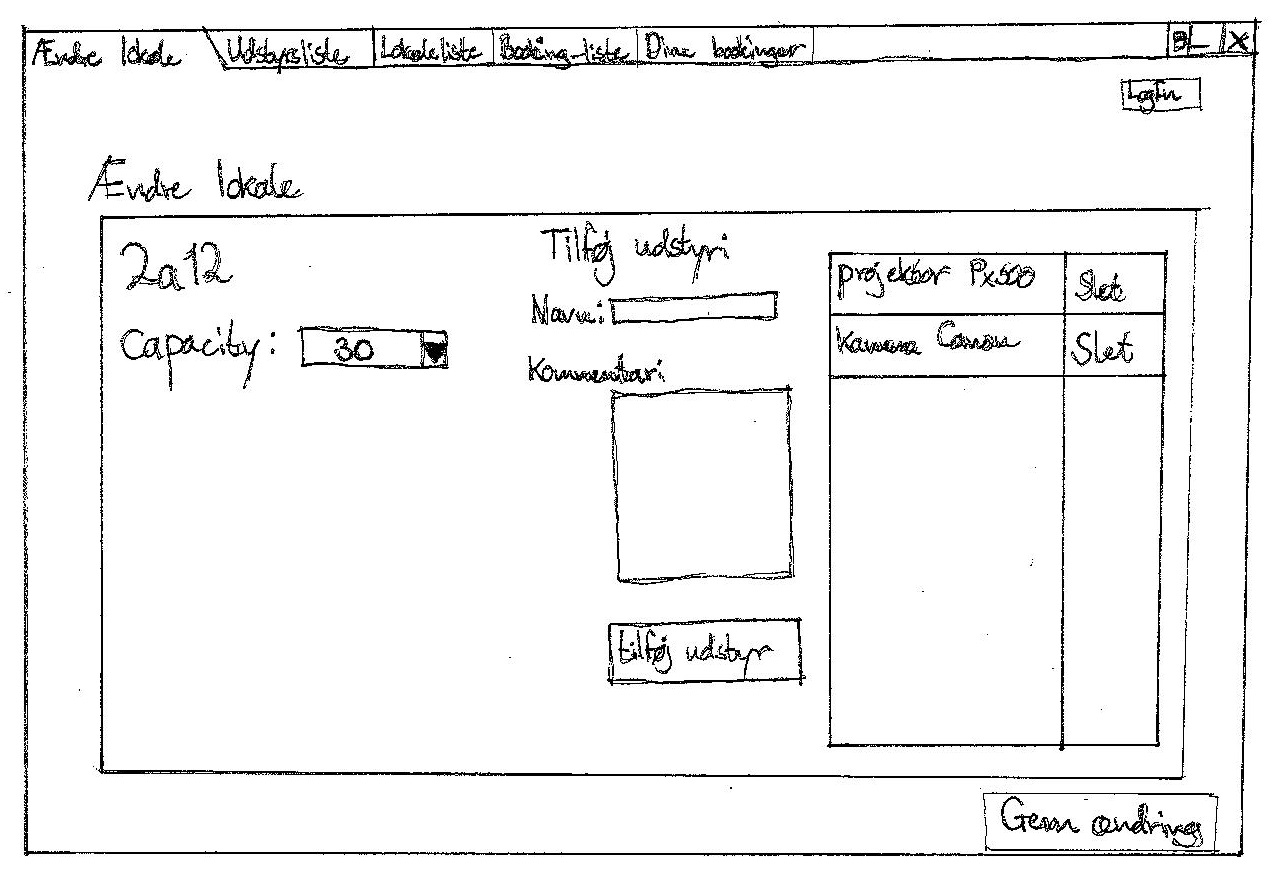 Ændre lokale Udstyrsliste Lokaleliste Booking-liste Dine bookinger X
LogIn
Ændre lokale
2a12
Capacity: 30
Tilføj udstyr:
Navn:
Kommentar:
tilføj udstyr
projektor Px500 Slet
Kamera Canon Slet
Gem ændring